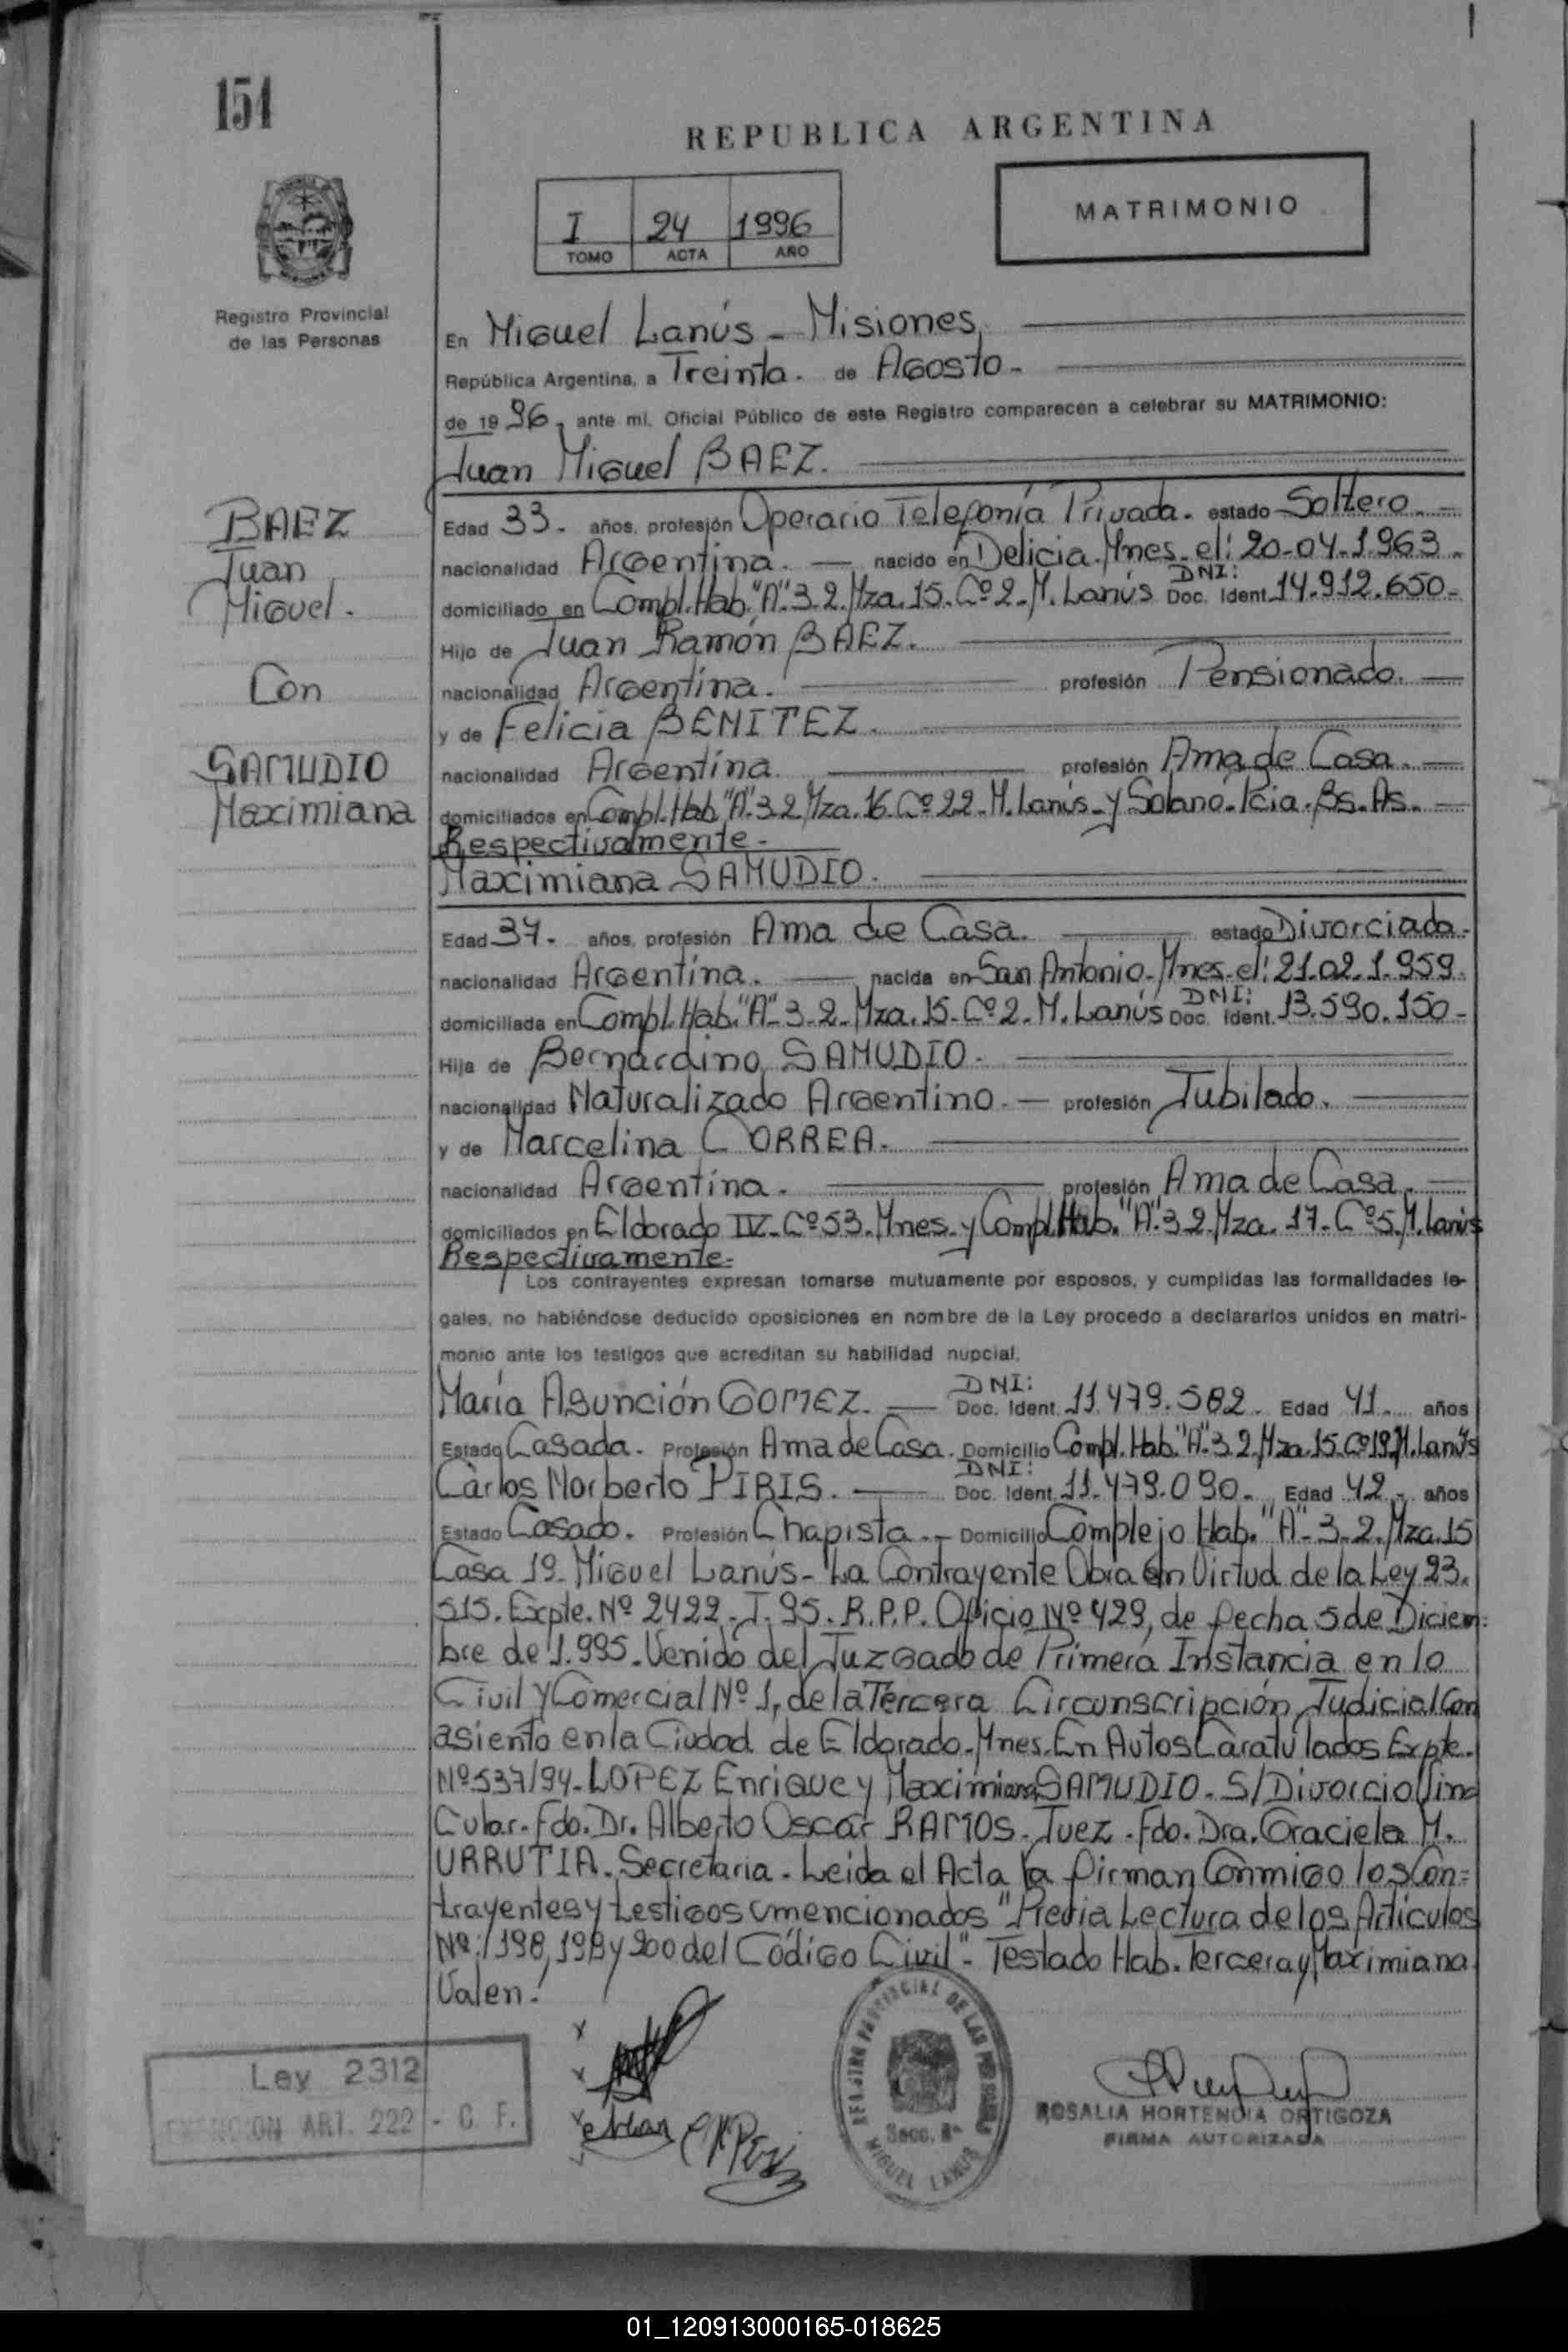 154
REPUBLICA ARGENTINA
I 24 1996
TOMO ACTA AÑO
MATRIMONIO
Registro Provincial
de las Personas
En Miguel Lanús - Misiones,
República Argentina, a Treinta. de Agosto.
de 1996, ante mi, Oficial Público de este Registro comparecen a celebrar su MATRIMONIO:
Juan Miguel BAEZ.
BAEZ
Juan
Miguel.
Con
SAMUDIO
Maximiana
Edad 33. años, profesión Operario Telefonía Privada. estado Soltero.
nacionalidad Argentina. nacido en Delicia. Mnes. el: 20-04-1.963.
domiciliado en Compl. Hab. "A". 3.2. Mza. 15. Cº 2. M. Lanús DNI: Doc. Ident. 14.912.650-
Hijo de Juan Ramón BAEZ.
nacionalidad Argentina. profesión Pensionado.
y de Felicia BENITEZ.
nacionalidad Argentina. profesión Ama de Casa.
domiciliados en Compl. Hab "A". 3 2 Mza. 16. Cº 22. M. Lanús-y Solano. Pcia. Bs. As.
Respectivamente.
Maximiana SAMUDIO.
Edad 37. años, profesión Ama de Casa. estado Divorciada.
nacionalidad Argentina. nacida en San Antonio. Mnes. el: 21.02.1.959.
domiciliada en Compl. Hab. "A"- 3-2. Mza. 15-Cº 2. M. Lanús DNI: Doc. Ident. 13.590.150-
Hija de Bernardino SAMUDIO.
nacionalidad Naturalizado Argentino. profesión Jubilado.
y de Marcelina CORREA.
nacionalidad Argentina. profesión Ama de Casa.
domiciliados en Eldorado IV-Cº 53. Mnes. y Compl. Hab. "A". 3 2. Mza. 17. Cº 5. M. Lanús
Respectivamente.
Los contrayentes expresan tomarse mutuamente por esposos, y cumplidas las formalidades le-
gales, no habiéndose deducido oposiciones en nombre de la Ley procedo a declararlos unidos en matri-
monio ante los testigos que acreditan su habilidad nupcial.
María Asunción GOMEZ. DNI: Doc. Ident. 11.479.582. Edad 41. años
Estado Casada. Profesión Ama de Casa. Domicilio Compl. Hab. "A". 3 2. Mza. 15. Cº 19. M. Lanús
Carlos Norberto PIRIS. DNI: Doc. Ident. 11.479.090. Edad 42. años
Estado Casado. Profesión Chapista. Domicilio Complejo Hab. "A"- 3-2. Mza. 15
Casa 19. Miguel Lanús- La Contrayente Obra en Virtud de la Ley 23.
515. Expte. Nº 2422. J. 95. R.P.P. Oficio Nº 429, de fecha 5 de Diciem:
bre de 1.995. Venido del Juzgado de Primera Instancia en lo
Civil y Comercial Nº 1, de la Tercera Circunscripción Judicial Con
asiento en la Ciudad de Eldorado. Mnes. En Autos Caratulados Expte.
Nº 537/94. LOPEZ Enrique y Maximiana SAMUDIO. S/Divorcio Vin
Cular. Fdo. Dr. Alberto Oscar RAMOS. Juez. Fdo. Dra. Graciela M.
URRUTIA. Secretaria. Leida el Acta la firman Conmigo los Con=
trayentes y testigos mencionados "Previa Lectura de los Artículos
Nº: 198, 199 y 200 del Código Civil". Testado Hab. Tercera y Maximiana
Valen!
Ley 2312
EXENCION ART. 222 - C. F.
REGISTRO PROVINCIAL DE LAS PERSONAS
MIGUEL LANUS
ROSALIA HORTENCIA ORTIGOZA
FIRMA AUTORIZADA
01_120913000165-018625